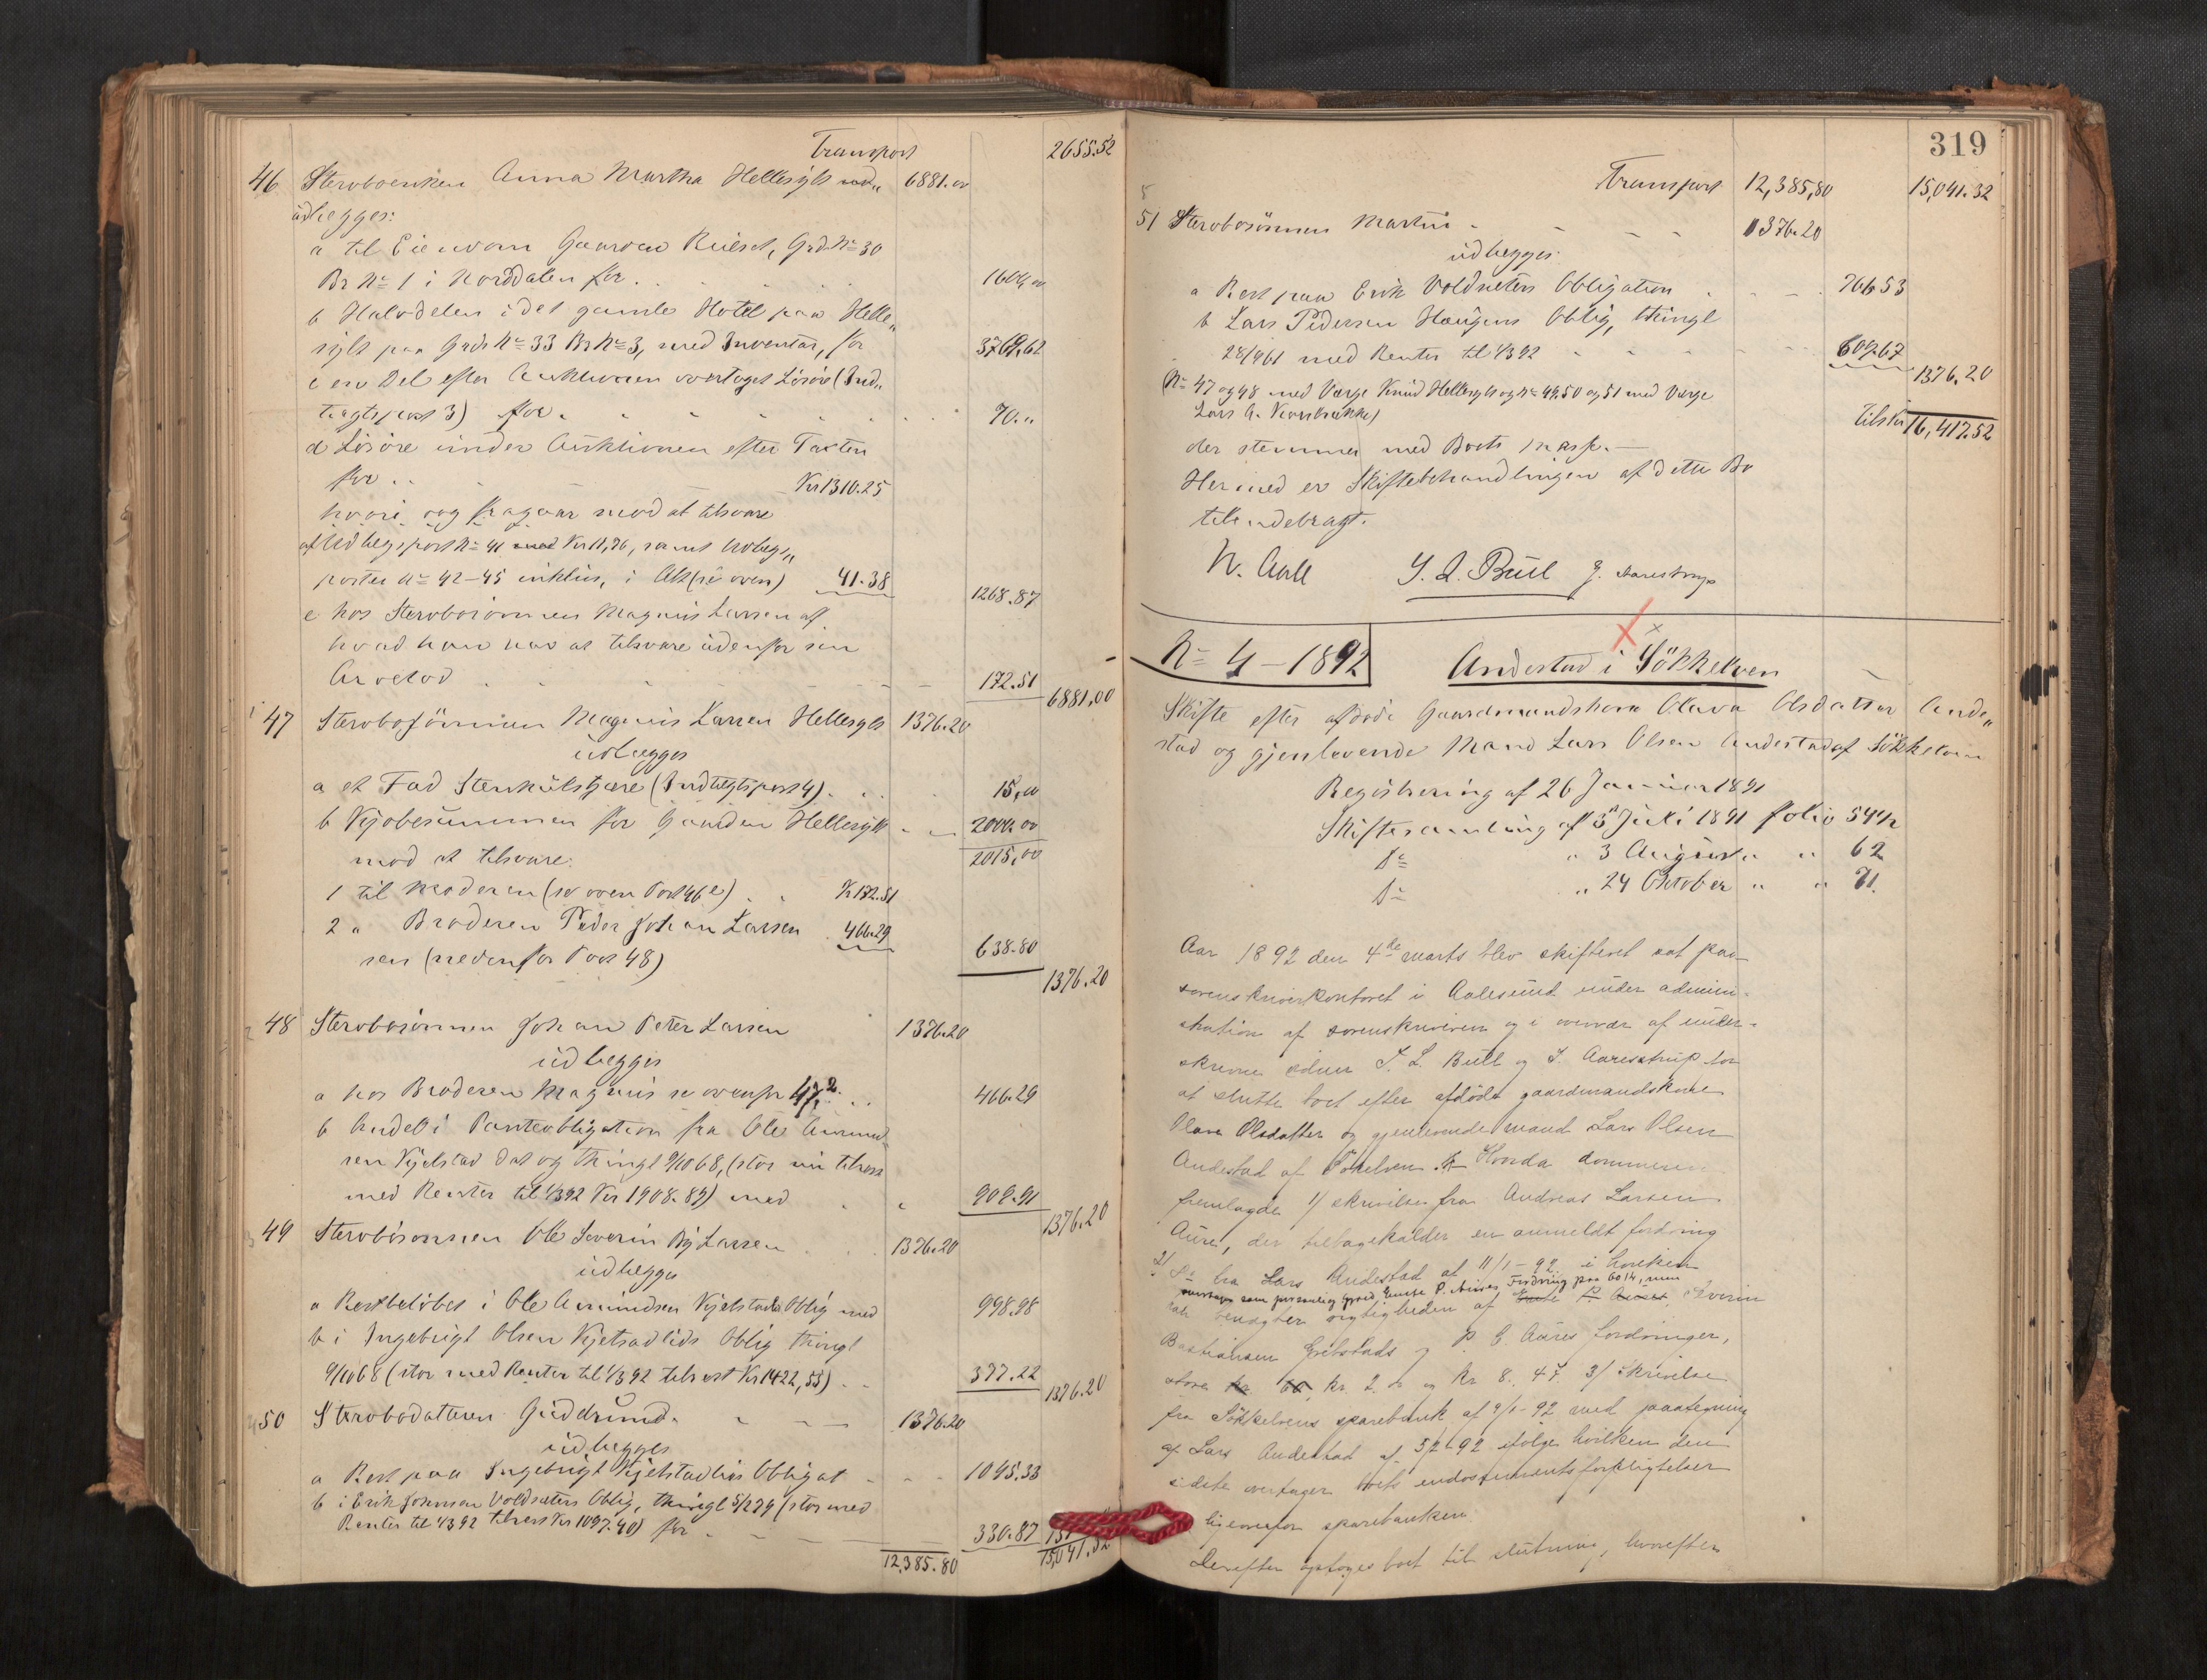 Transport 2655.52
46 Sterboenken Anna Martha Hellesylt 6881.00
udlægges:
a til Eiendom Gaarden Grds No 30
Br No 1 i Norddalen for . 1600,00
b Halvdelen i det gamle Hotel paa Helle„
sylt paa Grds No 33 Br No 3, med Inventar, for 3769,62
c en Del efter Auktionen overtaget Løsøre (Ind„
tægtspost 3) for . 70.„
d Løsøre under Auktionen efter Taxten
for .. Kr 1310.25
hvori fragaar mod at tilsvare
af Udlægspost No 41 Kr 11,76, samt Udlægs„
poster No 42-45 inklus, i Alt (se oven) 41.38
1268.87
e hos Sterbosønnen Magnus Larsen af
hvad han har at tilsvare udenfor sin
Arvelod 172.51
6881,00
47 Sterbosønnen Magnus Larsen Hellesylt 1376.20
udlægges
a et Fad Stenkulstjære (Indtægtspost 4) . 15,00
b Kjøbesummen for Gaarden Hellesylt 2000.00
mod at tilsvare: 2015,00
1 til Moderen (se oven Post 46 e) . Kr 172.51
2 „ Broderen Peder Johan Larsen 466.29
sen (nedenfor Post 48) 638.80
1376.20
48 Sterbosønnen Johan Peter Larsen 1376.20
udlægges
a hos Broderen Magnus se ovenfor 47,2 .. 466.29
b Andel i Panteobligation fra Ole Amund„
sen Kjelstad dat og thingl 9/10 68, (stor nu tilrest
med Renter til 1/3 92 Kr 1908.89) med 909.91
1376.20
49 Sterbosønnen Ole Severin Larsen 1376.20
udlægges
a Restbeløbet i Ole Amundsen Kjelstads Oblig med 998.98
b i Ingebrigt Olsen Kjelstadlids Oblig thingl
9/10 68 (stor med Renter til 1/3 92 tilrest Kr 1422,55) . 377.22
1376.20
50 Sterbodatteren Guddrund. 1376.20
udlægges
a Rest paa Ingebrigt Kjelstadlids Obligat 1045.33
b i Erik Johnsen Voldsæters Oblig, thingl 5/2 79 (stor med
Renter til 1/3 92 tilrest Kr 1097.40) for 330.87
12,385.80 15,041.32
319
Transport 12,385,80 15,041.32
51 Sterbosønnen Martin 1376.20
udlægges:
a Rest paa Erik Voldsæters Obligation 766.53
b Lars Pedersen Haugens Oblig, thingl
28/9 61 med Renter til 1/3 92 609.67
1376.20
(No 47 og 48 med Værge Knud Hellesylt og No 49.50 og 51 med Værge
Lars A.
Tilsk 16,417.52
der stemmer med Boets Masse.
Hermed er Skiftebehandlingen af dette Bo
tilendebragt.
N. Aall S. L. Bull J. Aarestrup
No 4 - 1892 Andestad i Søkkelven
Skifte efter afdøde Gaardmandskone Olava Olsdatter Ande„
stad og gjenlevende Mand Lars Olsen Andestad af Søkkelven
Registrering af 26 Januar 1891
Skiftesamling af 3 Juli 1891 folio 54
Do „ 3 August „ „ 62
Do „ 24 Oktober „ „ 71.
Aar 1892 den 4de marts blev skifteret sat paa
sorenskriverkontoret i Aalesund under admini-
stration af sorenskriveren og i overvær af under-
skrevne vidner S. L. Bull og J. Aarestrup for
at slutte boet efter afdøde gaardmandskone
Olava Olsdatter og gjenlevende mand Lars Olsen
Andestad af Søkelven. Hvorda dommeren
fremlagde 1/ skrivelse fra Andreas Larsen
Aure, der tilbagekalder en anmeldt fordring
2/ Do fra Lars Andestad af 11/1-92 i hvilken
overtages som personlig Gjæld P. Aures Fordring paa 60 , men
benægter rigtigheden af Sverin
Bastiansen Grebstads og P. G. Aures fordringer,
store kr. 2. og kr 8., 47. 3/ skrivelse
fra Søkkelvens sparebank af 9/1-92 med paategning
af Lars Andestad af 5/2-92 ifølge hvilken den
sidste overtager boets endossementsforpligtelser
ligeoverfor sparebanken.
Derefter optoges boet til slutning, hvorefter